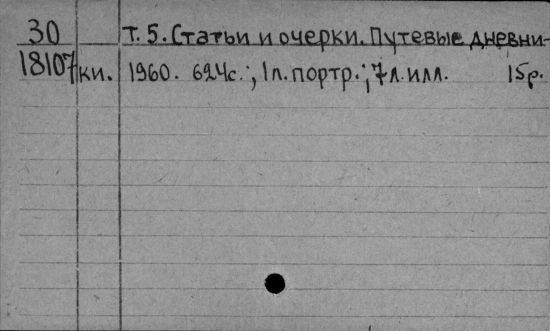 30 Т. 5. Статьи и очерки. Путевые дневни-
18107 ки. 1960. 624с.; 1л.портр.; 7л.илл. 15р.